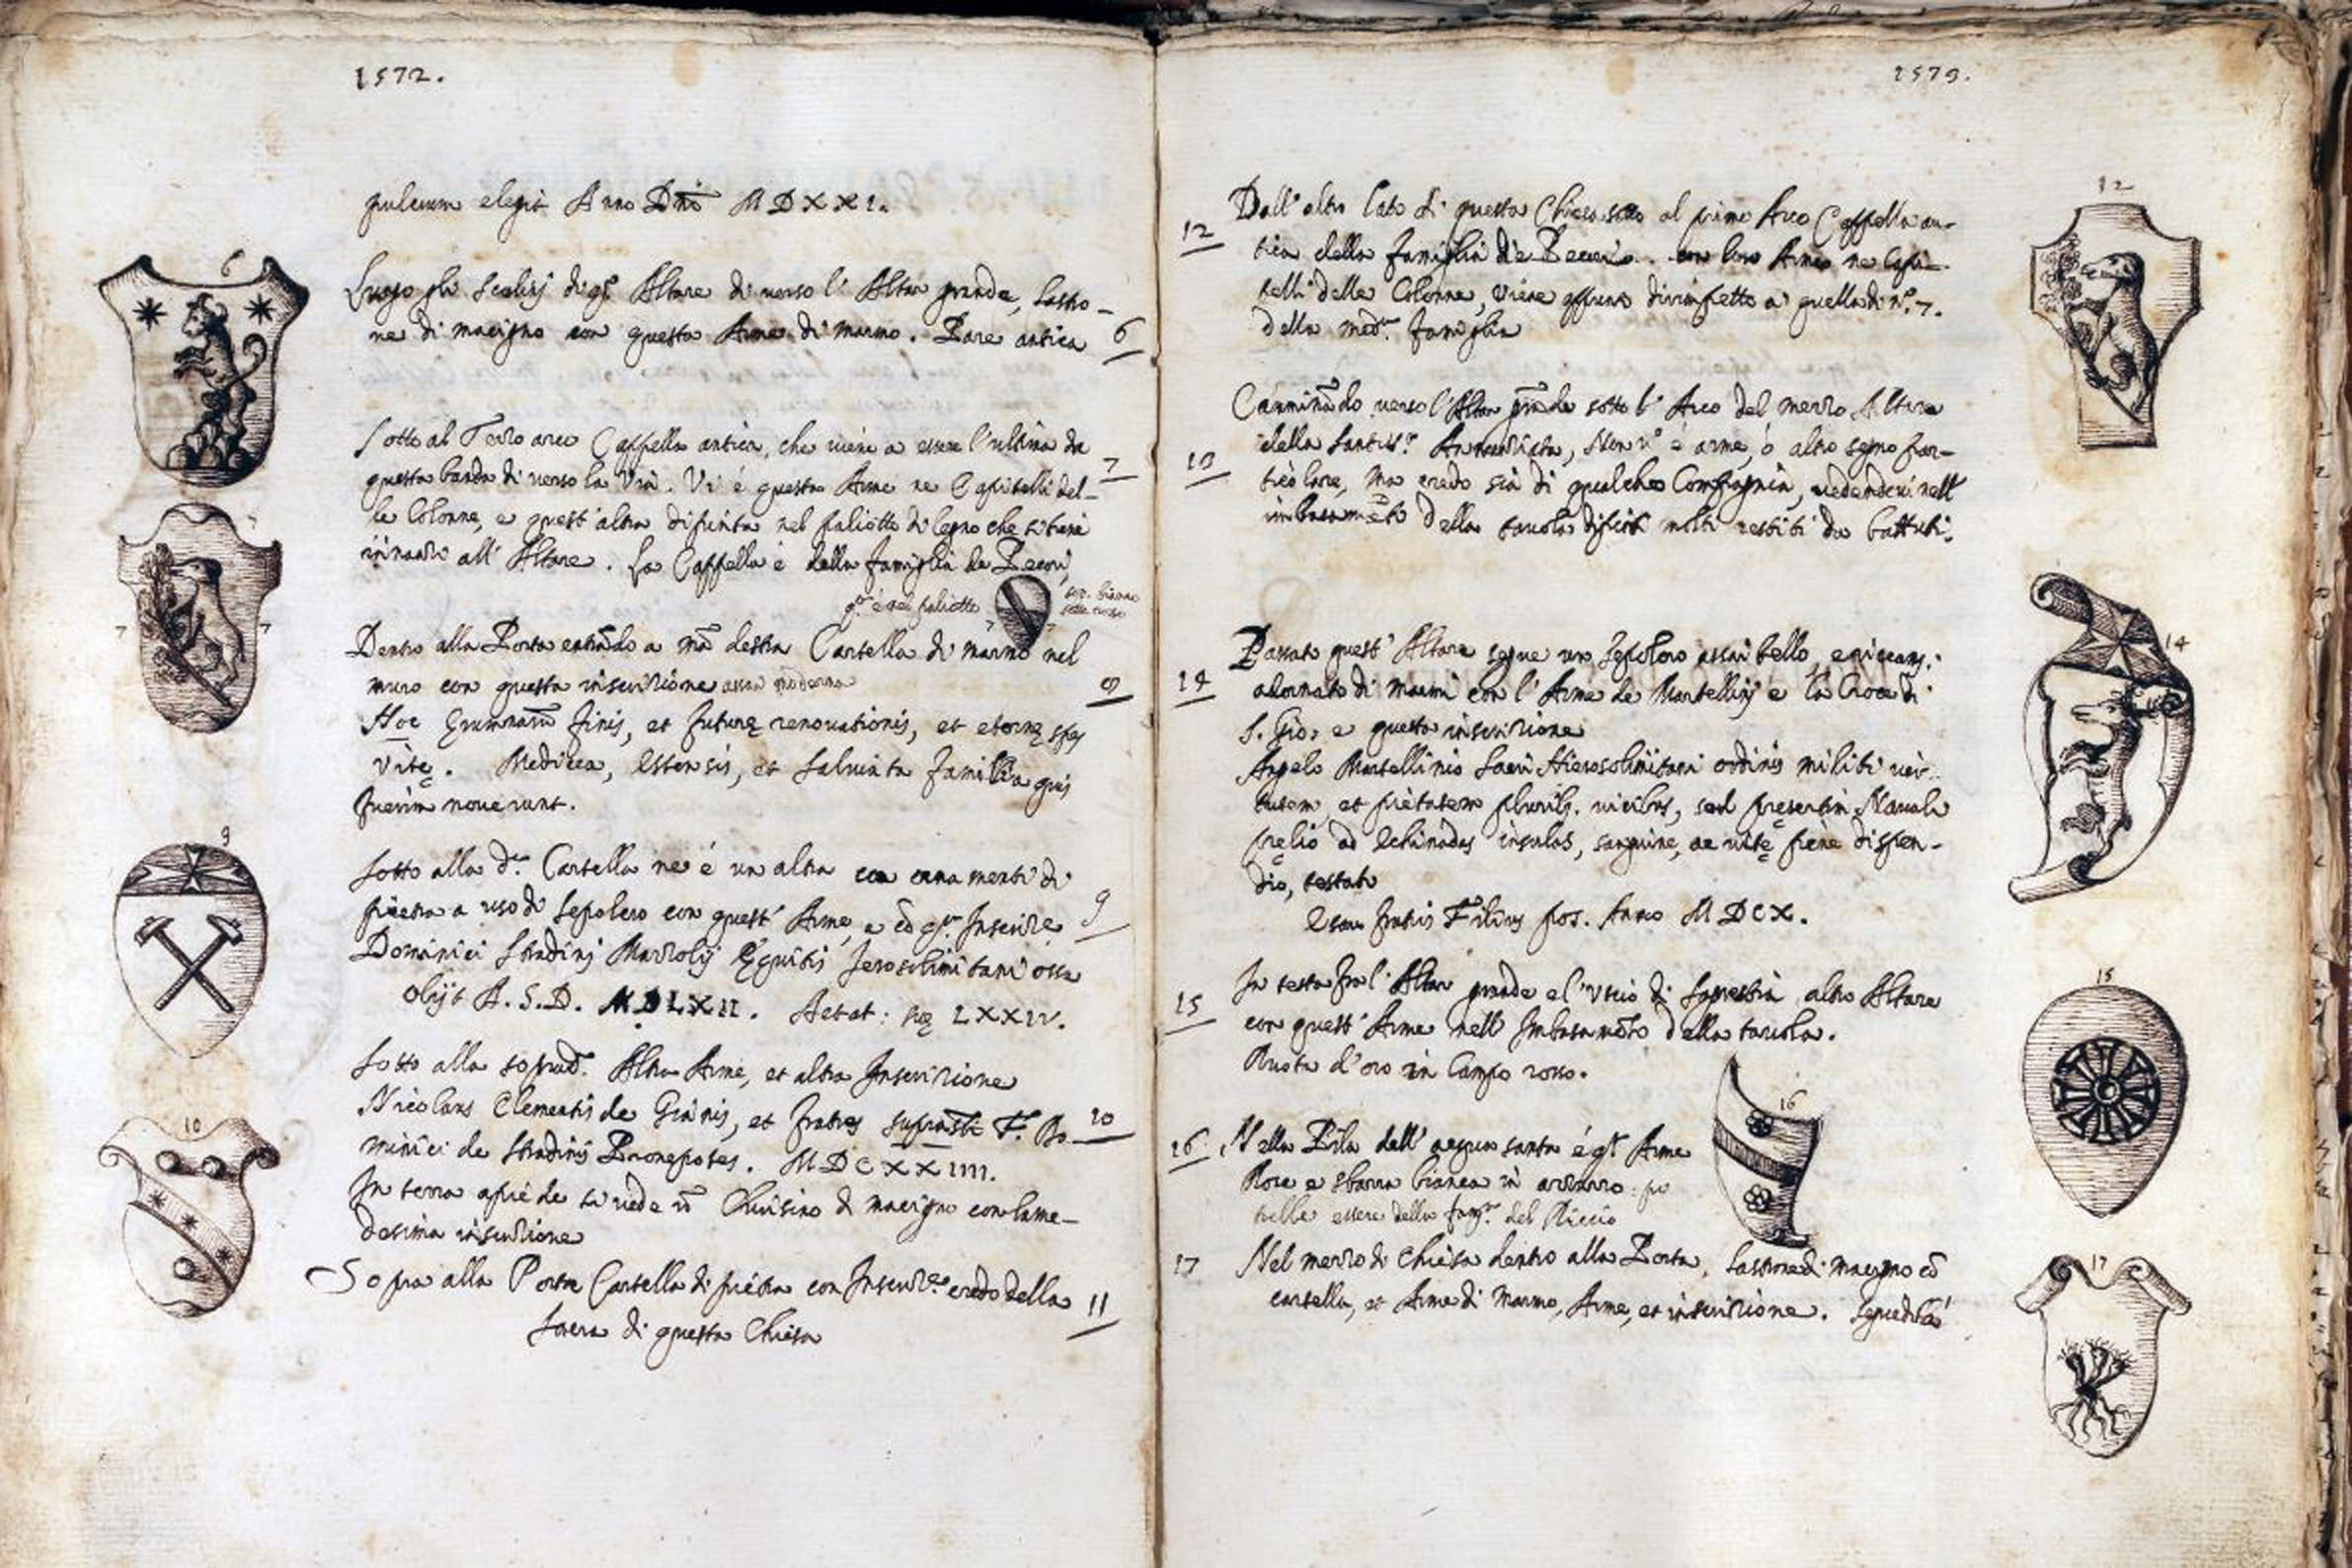 1572.
pulcrum elegit Anno Dni MDXXI.
6
Lungo gli Scalinj di qto Altare di verso l' Altar grande, lastro-
ne di macigno con questa Arme di marmo. Pare antica 6
Sotto al Terzo arco Cappella antica, che viene a essere l'ultima da
questa banda di verso la Via. Vi é questa Arme ne Capitelli del- 7
le Colonne, e quest' altra dipinta nel paliotto di legno che si tiene
innanzi all' Altare. La Cappella è della famiglia da
qta é nel paliotto
7 7
sop. bianco
sotto rosso
Dentro alla Porta entrãdo a mã destra Cartella di marmo nel
muro con questa inscrizione assai moderna 8
Hoc Erumnarũ finis, et futurę renovationis, et eternę spes
Vitę. Medicea, Estensis, et Salviata familia quis
fuerim noverunt.
9
Sotto alla da Cartella ne é un altra con ornamenti di
pietra a uso di sepolcro con quest' Arme, e cõ qta Inscrize 9
Dominici Stradinj Mazzolij Equitis Jerosolimitani ossa
Obijt A. S. D. MDLXII. Aetat: suę LXXIV.
10
Sotto alla soprada Altra Arme, et altra Inscrizione
Nicolaus Clementis de et fratres F. Do- 10
minici de Stradinis Pronepotes. MDCXXIIII.
In terra a piè de si vede ũ Chiusino di macigno con la me-
desima inscrizione
Sopra alla Porta Cartella di pietra con Inscrize credo della 11
Sacra di questa Chiesa
1573.
12
12 Dall' altro lato di questa Chiesa sotto al primo Arco Cappella an-
tica della famiglia de con loro Arme ne Capi-
telli delle Colonne, viene appunto dirimpetto a quella di n.o 7.
della meda famiglia
Camminãdo verso l'Altar grãde sotto l' Arco del mezzo Altare
13 della Santissa Annunziata, Non vi é arme, ò altro segno par-
ticolare, ma credo sia di qualche Compagnia, vedendovi nell'
imbasamẽto della tavola dipinti molti vestiti da battuti.
14
Passato quest' Altare segue un sepolcro assai bello,
14 adornato di marmi con l' Arme de Martellinj e la Croce di
S. Gio: e questa inscrizione
Angelo Martellinio Sacri Hierosolimitani ordinis militi vir-
tutem, et pietatem pluribs. vicibus, sed pręsertim Navali
pręlio ad Echinadas insulas, sanguine, ac vitę pene dispen-
dio, testato
fratris Filius pos. Anno MDCX.
15
In testa fra l' Altar grande e l' uscio di Sagrestia altro Altare
15 con quest' Arme nell' Imbasamẽto della tavola.
Ruota d'oro in Campo rosso.
16
16 Nella Pila dell' acqua santa é qta Arme
Rose e sbarra bianca in azzurro: po-
trebbe essere della famia del Riccio
17 Nel mezzo di Chiesa dentro alla Porta, lastrone di macigno cõ
cartella, et Arme di Marmo, Arme, et inscrizione.
17